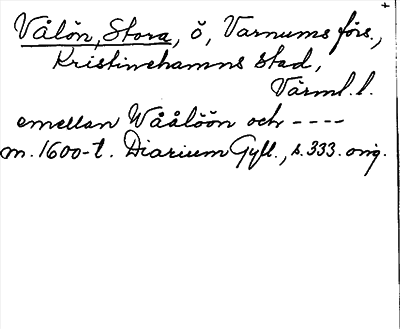 Vålön, Stora, ö, Varnums förs.,
Kristinehamns stad,
Värml.l.
emellan Wåålöön och ----
m. 1600-t. Diarium Gyll., s. 333. orig.